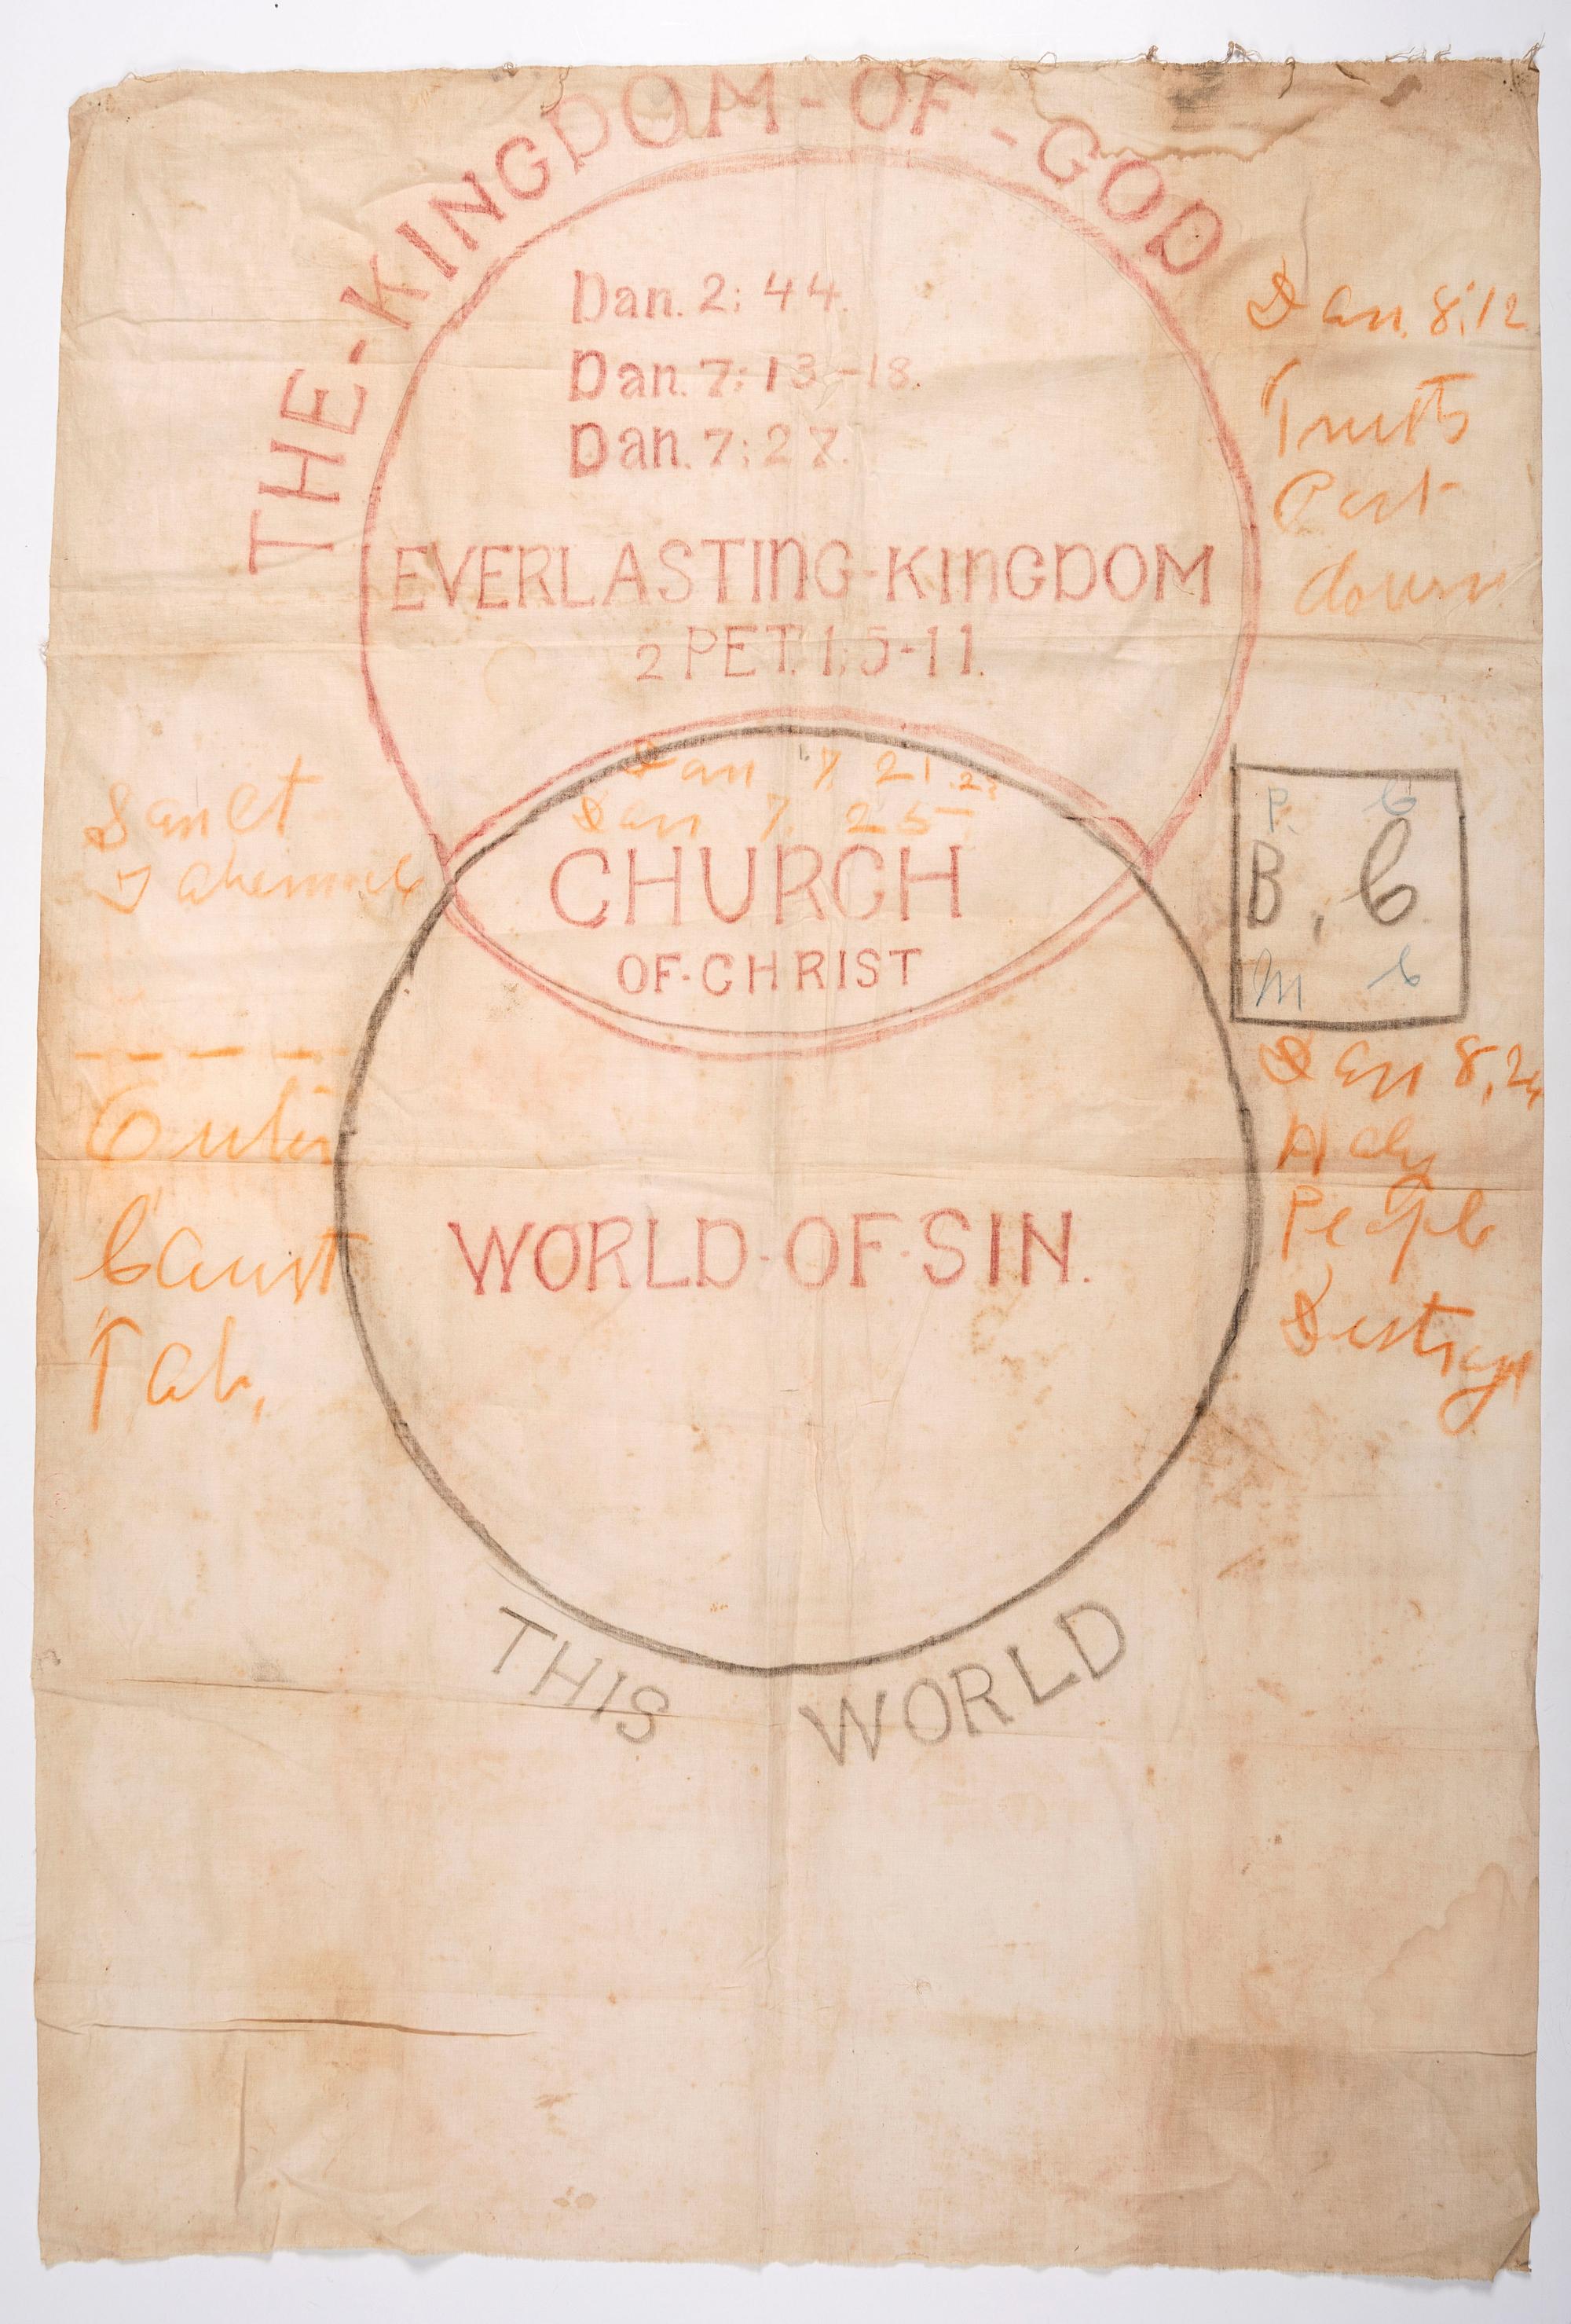 THE-KINGDOM-OF-GOD
Dan. 2:44.
Dan. 7:13-18.
Dan. 7:27.
EVERLASTING-KINGDOM
2 PET. 1:5-11.
Dan 7 21.22
Dan 7. 25
CHURCH
OF-CHRIST
WORLD-OF-SIN.
THIS WORLD
Sanct
Tabernacle
Outer
Court
Tab,
Dan. 8:12
Truth
Cast
down
P. C
B, C
M C
Dan 8,24
Holy
People
Destroy